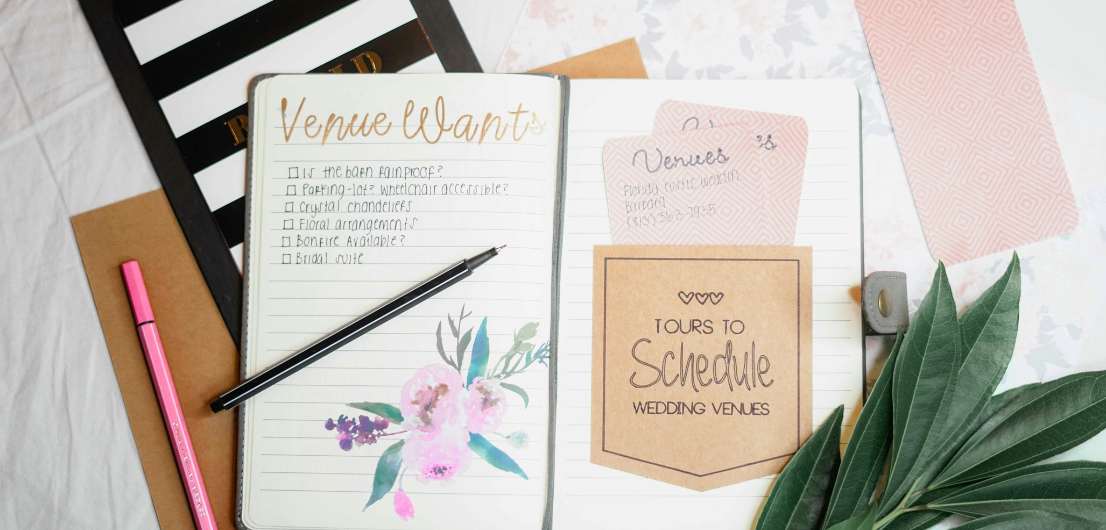 Venue Wants
Is the barn rainproof?
Parking-lot? wheelchair accessible?
Crystal chandeliers
Floral arrangements
Bonfire Available?
Bridal suite
Venues
Florida rustic
Barbara
TOURS TO
Schedule
WEDDING VENUES